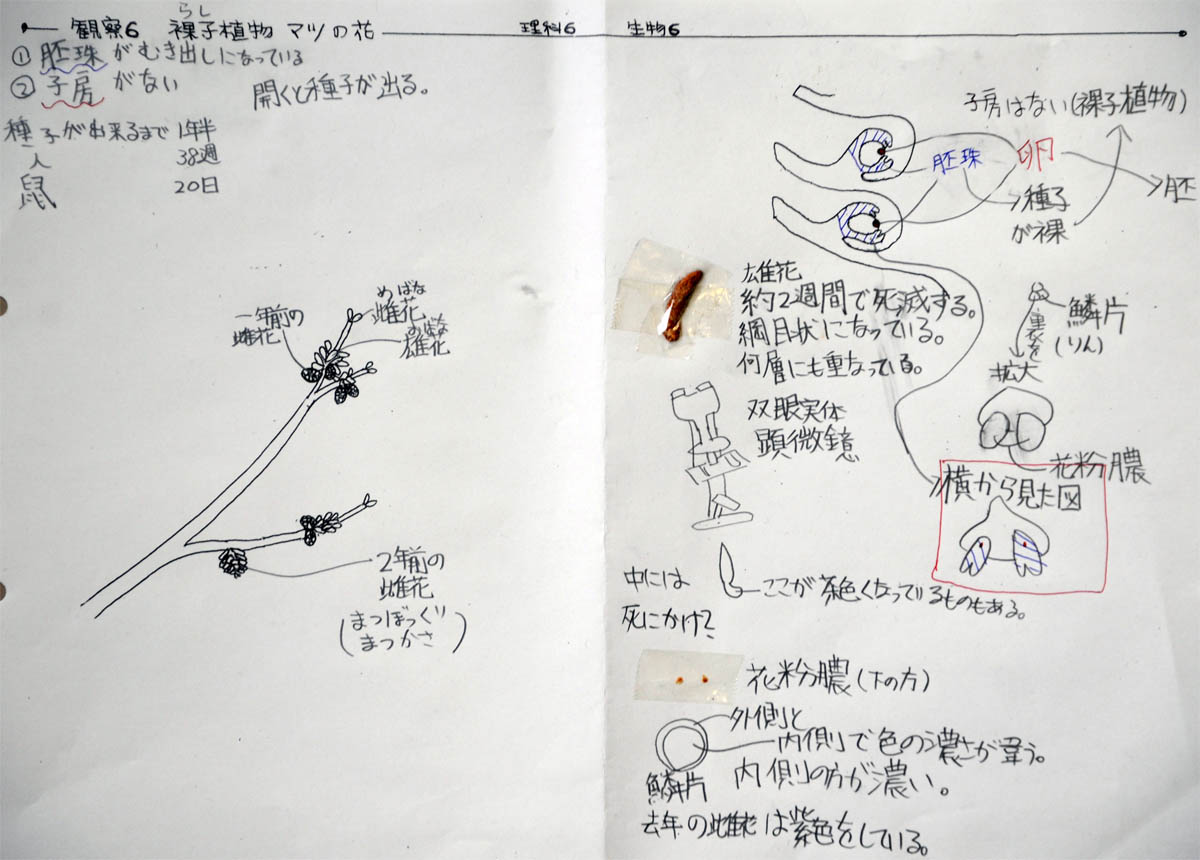 観察6 裸子植物 マツの花 理科6 生物6
らし
① 胚珠がむき出しになっている
② 子房がない 開くと種子が出る。
種子が出来るまで 1年半
人 38週
鼠 20日
一年前の
雌花
めばな
雌花
おばな
雄花
2年前の
雌花
(まつぼっくり
まつかさ)
子房はない(裸子植物)
胚珠 卵
胚
種子
が裸
雄花
約2週間で死滅する。
網目状になっている。
何層にも重なっている。
鱗片
(りん)
拡大
花粉膿
双眼実体
顕微鏡
横から見た図
中には
死にかけ?
ここが茶色くなっているものもある。
花粉膿(下の方)
外側と
内側で色の濃さが違う。
内側の方が濃い。
鱗片
去年の雌花は紫色をしている。